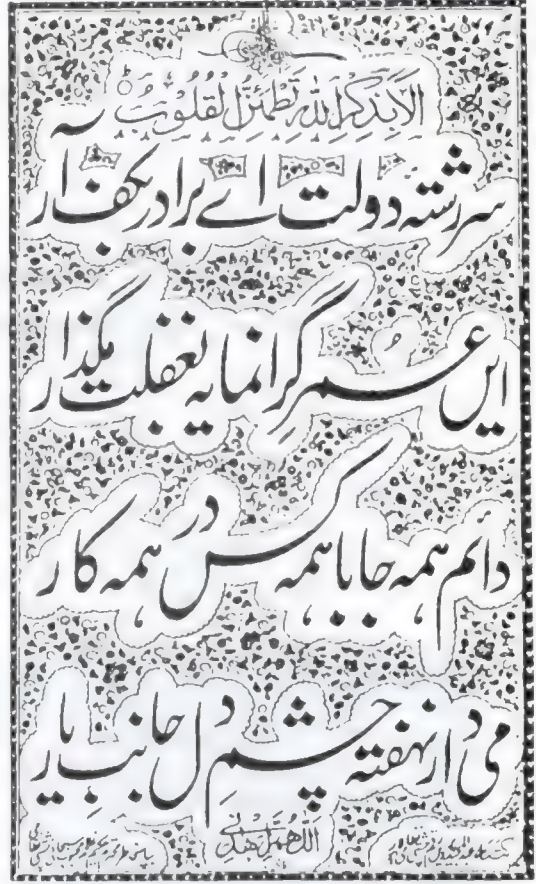 الا بذکر الله تطمئن القلوب
سر رشته دولت اے برادر بکف آر
ایں عمر گرانمایه بغفلت مگذار
دائم همه جا با همه کس در همه کار
می دار نهفته چشم دل جانب یار